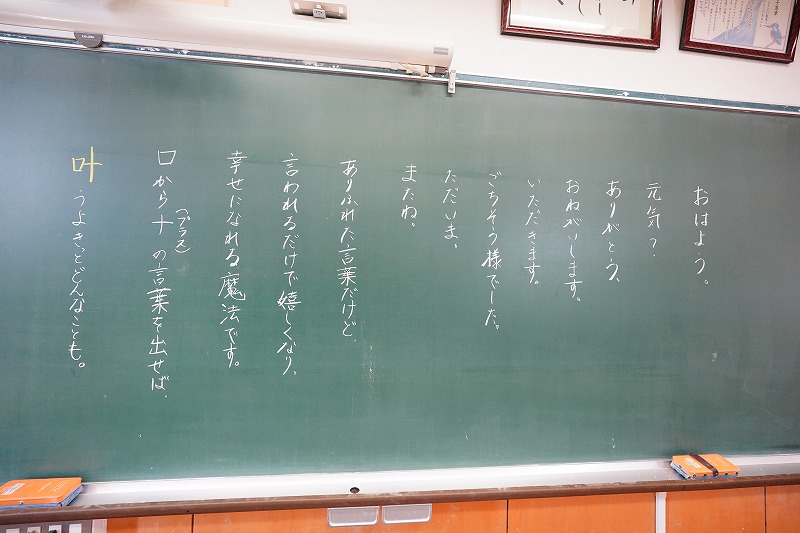 おはよう。
元気？
ありがとう。
おねがいします。
いただきます。
ごちそう様でした。
ただいま。
またね。
ありふれた言葉だけど、
言われるだけで嬉しくなり、
幸せになれる魔法です。
口から十(プラス)の言葉を出せば、
叶うよきっとどんなことも。